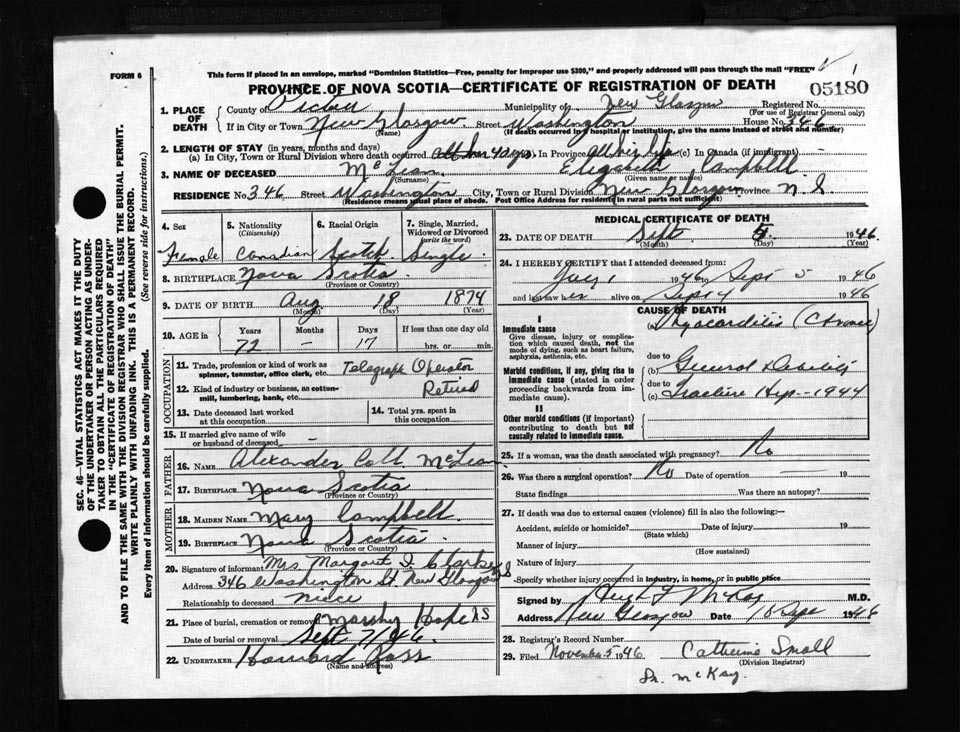 FORM 6
This form if placed in an envelope, marked "Dominion Statistics—Free, penalty for improper use $300," and properly addressed will pass through the mail "FREE"
PROVINCE OF NOVA SCOTIA—CERTIFICATE OF REGISTRATION OF DEATH
05180
1. PLACE OF DEATH
County of Pictou Municipality of New Glasgow Registered No.
(For use of Registrar General only)
If in City or Town New Glasgow Street Washington House No. 346
(Name) (If death occurred in a hospital or institution, give name instead of street and number)
2. LENGTH OF STAY (in months and days)
(a) In City, Town or Rural Division where death occurred 40 yrs In Province all her life (c) In Canada (if immigrant)
3. NAME OF DECEASED McLean Campbell
(Surname) (Given name or names)
RESIDENCE No. 346 Street Washington City, Town or Rural Division New Glasgow Province N.S.
(Residence means usual place of abode. Post Office Address for residents in rural parts not sufficient)
SEC. 46—VITAL STATISTICS ACT MAKES IT THE DUTY
OF THE UNDERTAKER OR PERSON ACTING AS UNDER-
TAKER TO OBTAIN ALL THE PARTICULARS REQUIRED
IN THE "CERTIFICATE OF REGISTRATION OF DEATH"
AND TO FILE THE SAME WITH THE DIVISION REGISTRAR WHO SHALL ISSUE THE BURIAL PERMIT.
WRITE PLAINLY WITH UNFADING INK. THIS IS A PERMANENT RECORD.
Every item of information should be carefully supplied. (See reverse side for instructions.)
4. Sex
Female
5. Nationality
(Citizenship)
Canadian
6. Racial Origin
Scotch
7. Single, Married, Widowed or Divorced
(write the word)
Single
8. BIRTHPLACE Nova Scotia
(Province or Country)
9. DATE OF BIRTH Aug 18 1874
(Month) (Day) (Year)
10. AGE in Years Months Days If less than one day old
72 — 17 hrs. or min.
OCCUPATION
11. Trade, profession or kind of work as spinner, teamster, office clerk, etc. Telegraph Operator
12. Kind of industry or business, as cotton-mill, lumbering, bank, etc. Retired
13. Date deceased last worked at this occupation
14. Total yrs. spent in this occupation
15. If married give name of wife or husband of deceased —
FATHER
16. NAME Alexander McLean
17. BIRTHPLACE Nova Scotia
(Province or Country)
MOTHER
18. MAIDEN NAME Mary Campbell
19. BIRTHPLACE Nova Scotia
(Province or Country)
20. Signature of informant Mrs Margaret Clarke
Address 346 Washington St. New Glasgow NS
Relationship to deceased Niece
21. Place of burial, cremation or removal Marshy Hope NS
Date of burial or removal Sept 7/1946
22. UNDERTAKER Howard Ross
(Name and address)
MEDICAL CERTIFICATE OF DEATH
23. DATE OF DEATH Sept. 1946
(Month) (Day) (Year)
24. I HEREBY CERTIFY that I attended deceased from:
1946 to Sept 5 1946
and last saw her alive on Sept 4 1946
CAUSE OF DEATH
I
Immediate cause
Give disease, injury or complication which caused death, not the mode of dying, such as heart failure, asphyxia, asthenia, etc.
(a) Myocarditis (Chronic)
due to
Morbid conditions, if any, giving rise to immediate cause (stated in order proceeding backwards from immediate cause).
(b) General Debility
due to
(c) Fracture Hip—1944
II
Other morbid conditions (if important) contributing to death but not causally related to immediate cause.
25. If a woman, was the death associated with pregnancy? No
26. Was there a surgical operation? No Date of operation 19
State findings Was there an autopsy?
27. If death was due to external causes (violence) fill in also the following:—
Accident, suicide or homicide? Date of injury 19
(State which)
Manner of injury
(How sustained)
Nature of injury
Specify whether injury occurred in industry, in home, or in public place
Signed by McKay M.D.
Address New Glasgow Date Sept 1946
28. Registrar's Record Number
29. Filed November 5 1946 Catherine Small
(Division Registrar)
Dr. McKay.